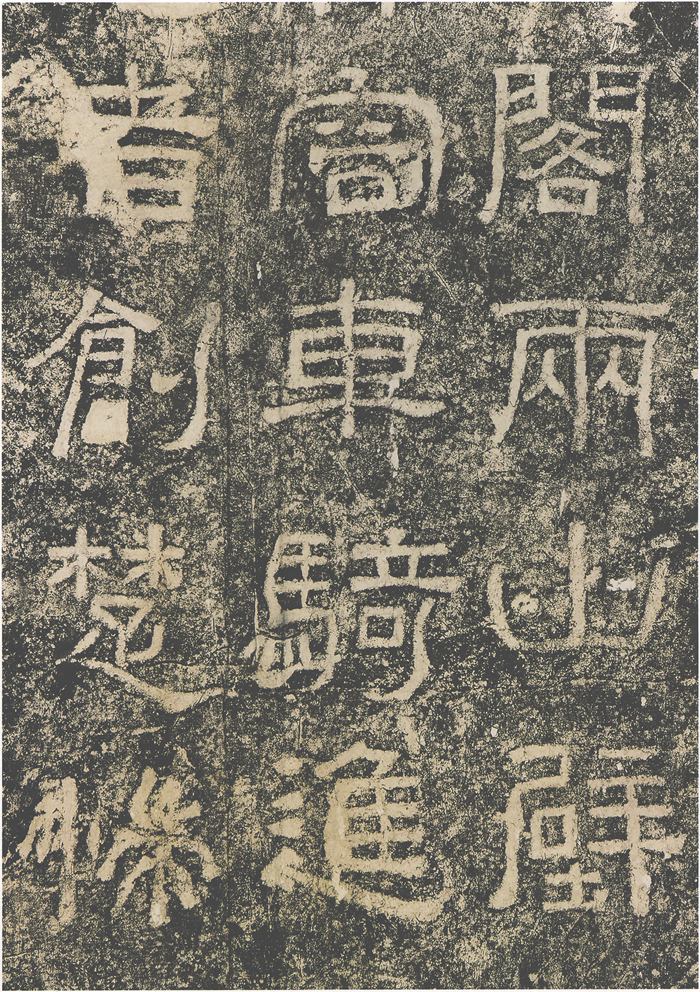 閣兩山壁
容車騎進
者創楚惴